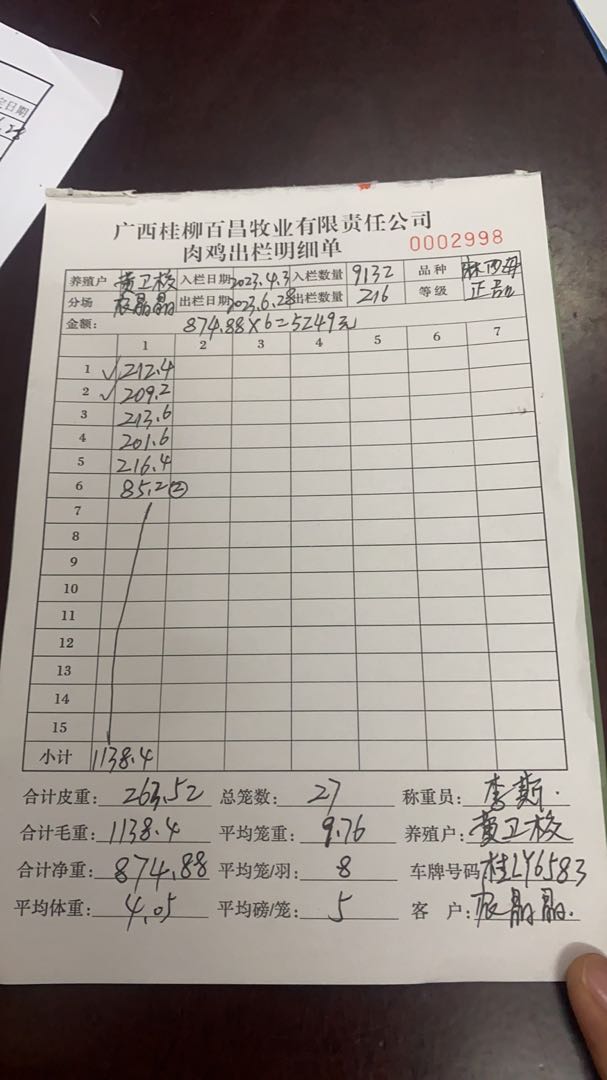 广西桂柳百昌牧业有限责任公司
肉鸡出栏明细单 0002998
养殖户 黄卫校 入栏日期 2023.4.3 入栏数量 9132 品种
分场 晶晶 出栏日期 2023.6.28 出栏数量 216 等级 正品
金额: 874.88×6=5249元
1 2 3 4 5 6 7
1 √ 212.4
2 √ 209.2
3 213.6
4 201.6
5 216.4
6 85.2 ②
7
8
9
10
11
12
13
14
15
小计 1138.4
合计皮重: 263.52 总笼数: 27 称重员: 李斯
合计毛重: 1138.4 平均笼重: 9.76 养殖户: 黄卫校
合计净重: 874.88 平均笼/羽: 8 车牌号码 桂LY6583
平均体重: 4.05 平均磅/笼: 5 客户: 晶晶
定日期